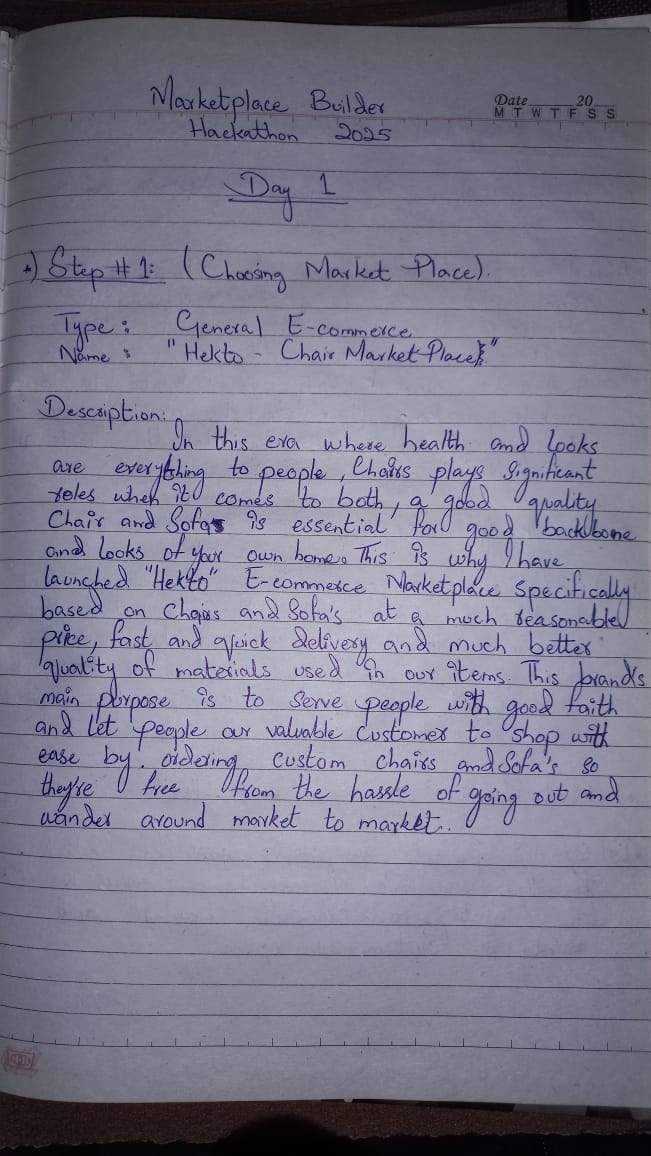 Marketplace Builder
Date 20
M T W T F S S
Hackathon 2025
Day 1
Step # 1: (Choosing Market Place).
Type: General E-commerce
Name: "Hekto - Chair Market Place"
Description:
In this era where health and looks
are everything to people, Chairs plays significant
roles when it comes to both, a good quality
Chair and Sofas is essential for good backbone
and looks of your own home. This is why I have
launched "Hekto" E-commerce Marketplace specifically
based on Chairs and Sofa's at a much reasonable
price, fast and quick delivery and much better
quality of materials used in our items. This brands
main purpose is to serve people with good faith
and let people our valuable customer to shop with
ease by. ordering custom chairs and Sofa's so
they're free from the hassle of going out and
wander around market to market..